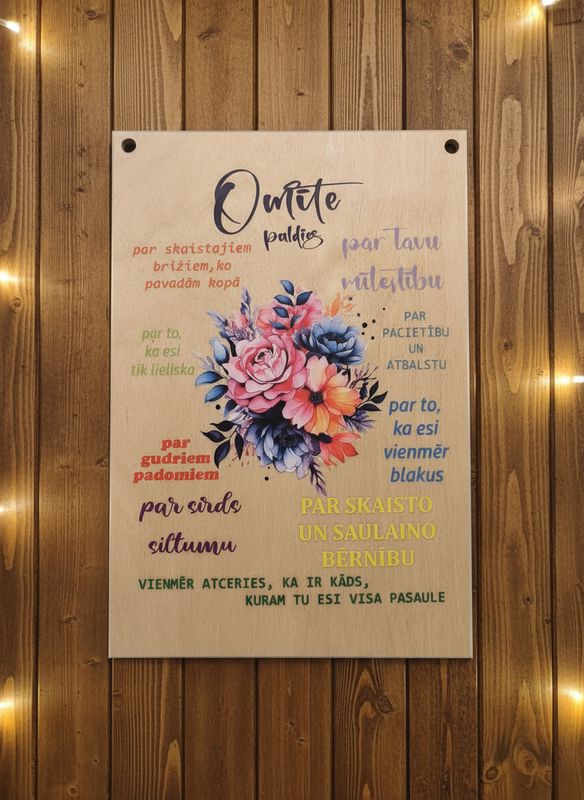 Omīte
paldies
par skaistajiem
brīžiem,ko
pavadām kopā
par tavu
mīlestību
par to,
ka esi
tik lieliska
PAR
PACIETĪBU
UN
ATBALSTU
par to,
ka esi
vienmēr
blakus
par
gudriem
padomiem
par sirds
siltumu
PAR SKAISTO
UN SAULAINO
BĒRNĪBU
VIENMĒR ATCERIES, KA IR KĀDS,
KURAM TU ESI VISA PASAULE